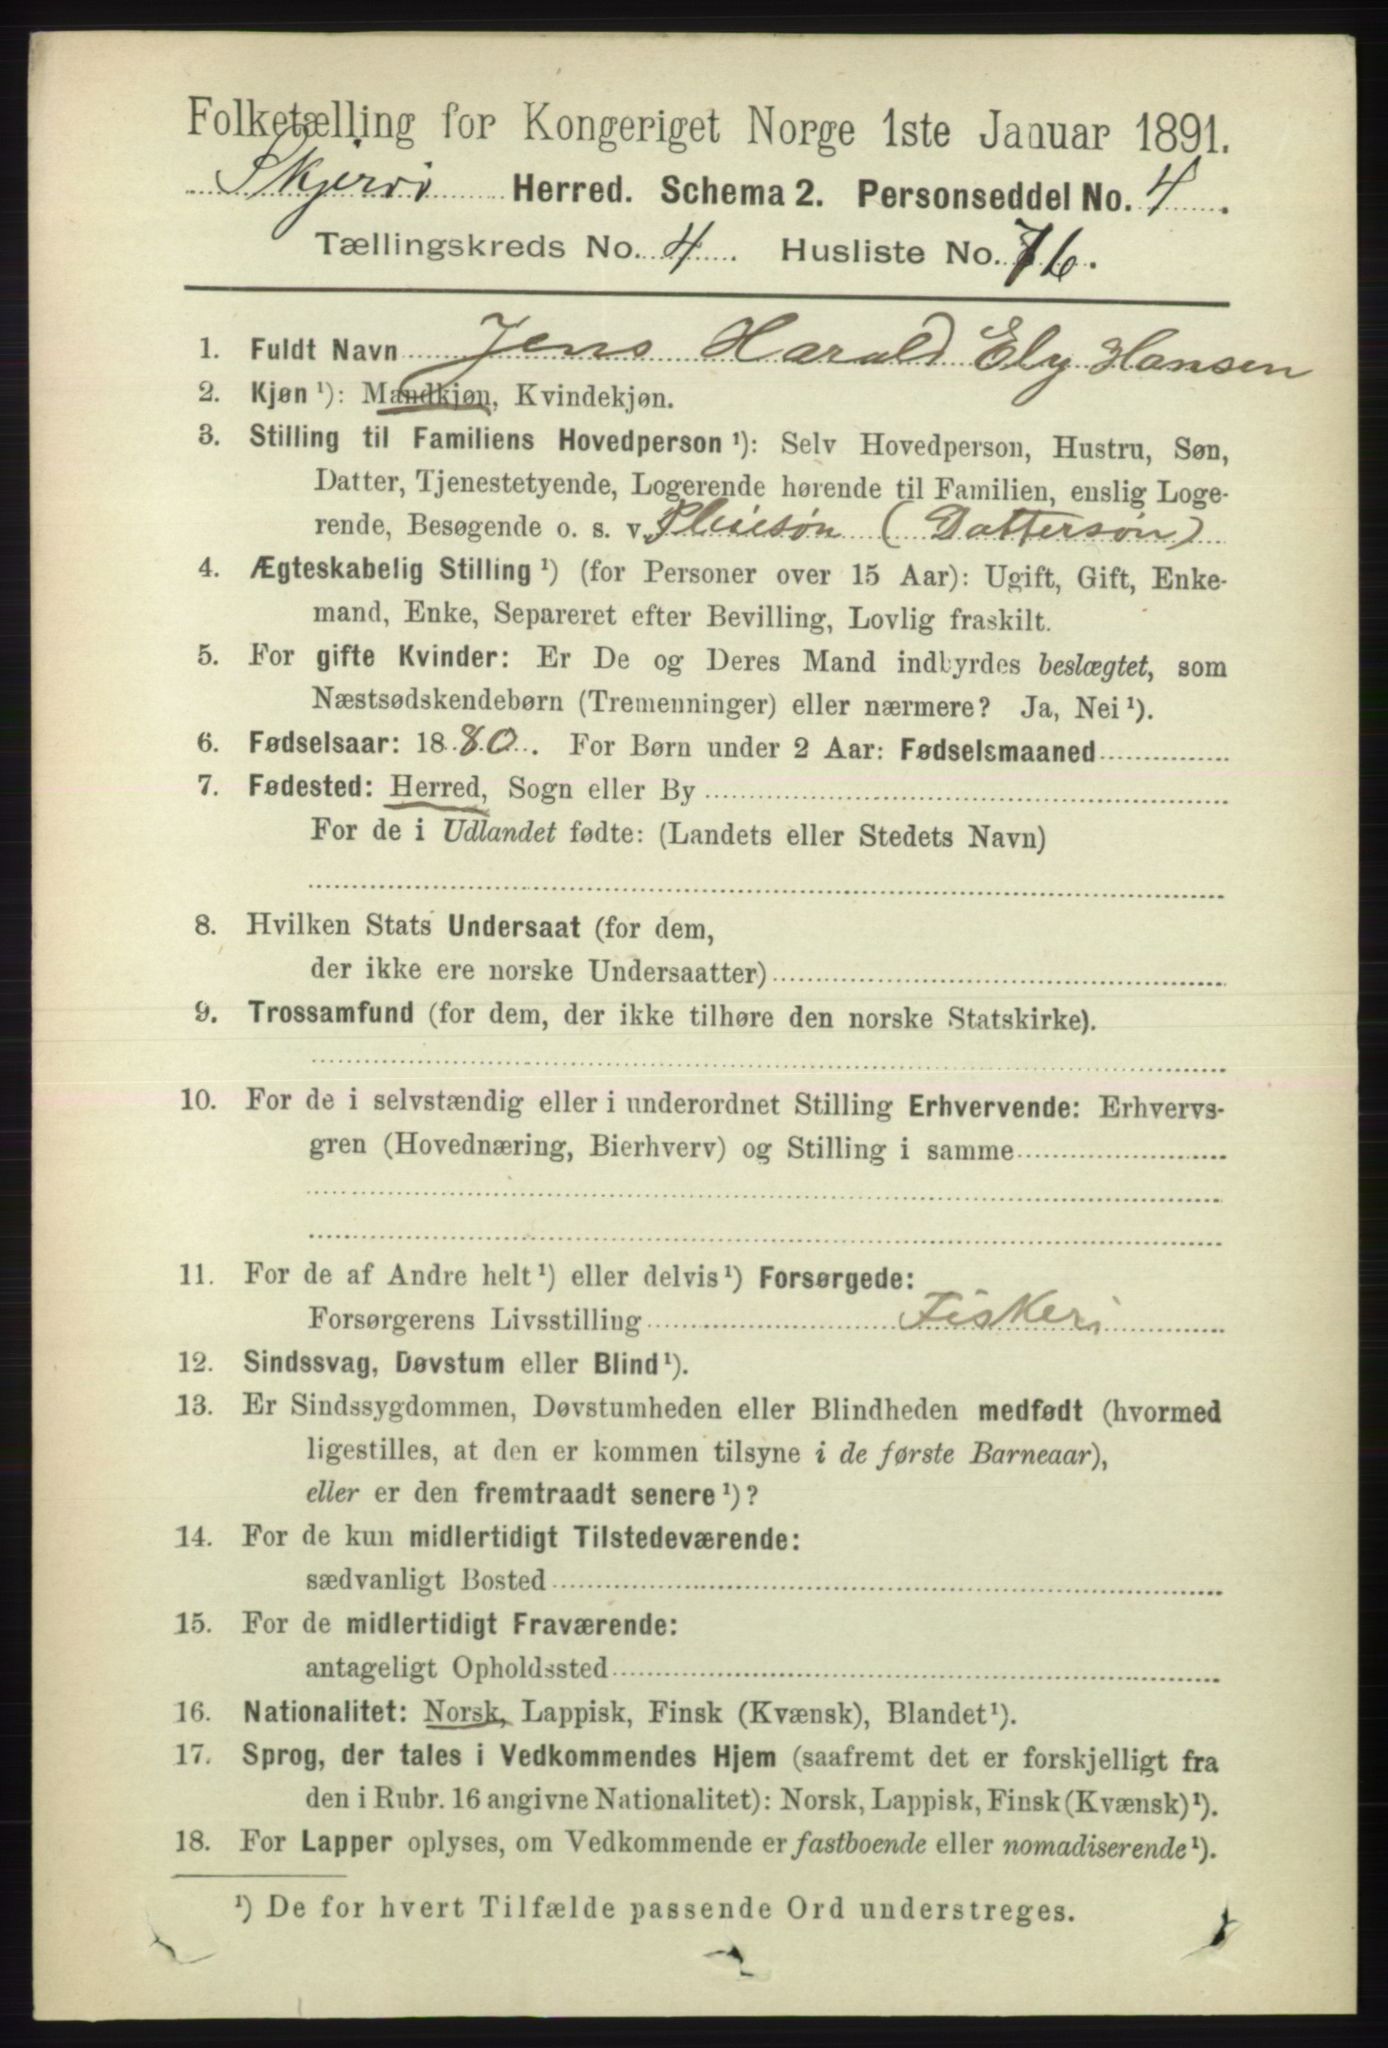 Folketælling for Kongeriget Norge 1ste Januar 1891.
Skjervö Herred. Schema 2. Personseddel No. 4.
Tællingskreds No. 4. Husliste No. 76.
1. Fuldt Navn Jens Harald Ely Hansen
2. Kjøn ¹): Mandkjøn, Kvindekjøn.
3. Stilling til Familiens Hovedperson ¹): Selv Hovedperson, Hustru, Søn,
Datter, Tjenestetyende, Logerende hørende til Familien, enslig Loge-
rende, Besøgende o. s. v. Pleiesøn (Dattersøn)
4. Ægteskabelig Stilling ¹) (for Personer over 15 Aar): Ugift, Gift, Enke-
mand, Enke, Separeret efter Bevilling, Lovlig fraskilt.
5. For gifte Kvinder: Er De og Deres Mand indbyrdes beslægtet, som
Næstsødskendebørn (Tremenninger) eller nærmere? Ja, Nei ¹).
6. Fødselsaar: 1880. For Børn under 2 Aar: Fødselsmaaned
7. Fødested: Herred, Sogn eller By
For de i Udlandet fødte: (Landets eller Stedets Navn)
8. Hvilken Stats Undersaat (for dem,
der ikke ere norske Undersaatter)
9. Trossamfund (for dem, der ikke tilhøre den norske Statskirke).
10. For de i selvstændig eller i underordnet Stilling Erhvervende: Erhvervs-
gren (Hovednæring, Bierhverv) og Stilling i samme
11. For de af Andre helt ¹) eller delvis ¹) Forsørgede:
Forsørgerens Livsstilling Fiskeri
12. Sindssvag, Døvstum eller Blind ¹).
13. Er Sindssygdommen, Døvstumheden eller Blindheden medfødt (hvormed
ligestilles, at den er kommen tilsyne i de første Barneaar),
eller er den fremtraadt senere ¹)?
14. For de kun midlertidigt Tilstedeværende:
sædvanligt Bosted
15. For de midlertidigt Fraværende:
antageligt Opholdssted
16. Nationalitet: Norsk, Lappisk, Finsk (Kvænsk), Blandet ¹).
17. Sprog, der tales i Vedkommendes Hjem (saafremt det er forskjelligt fra
den i Rubr. 16 angivne Nationalitet): Norsk, Lappisk, Finsk (Kvænsk) ¹).
18. For Lapper oplyses, om Vedkommende er fastboende eller nomadiserende ¹).
¹) De for hvert Tilfælde passende Ord understreges.